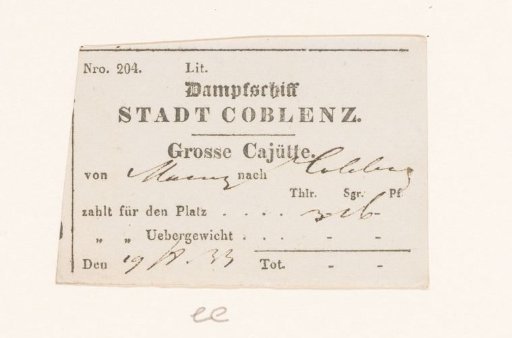 Nro. 204. Lit.
Dampfschiff
STADT COBLENZ.
Grosse Cajütte.
von Maynz nach Coblenz
Thlr. Sgr. Pf.
zahlt für den Platz . . . .
„ „ Uebergewicht . . . - - -
Den 19 33 Tot. - -
ee